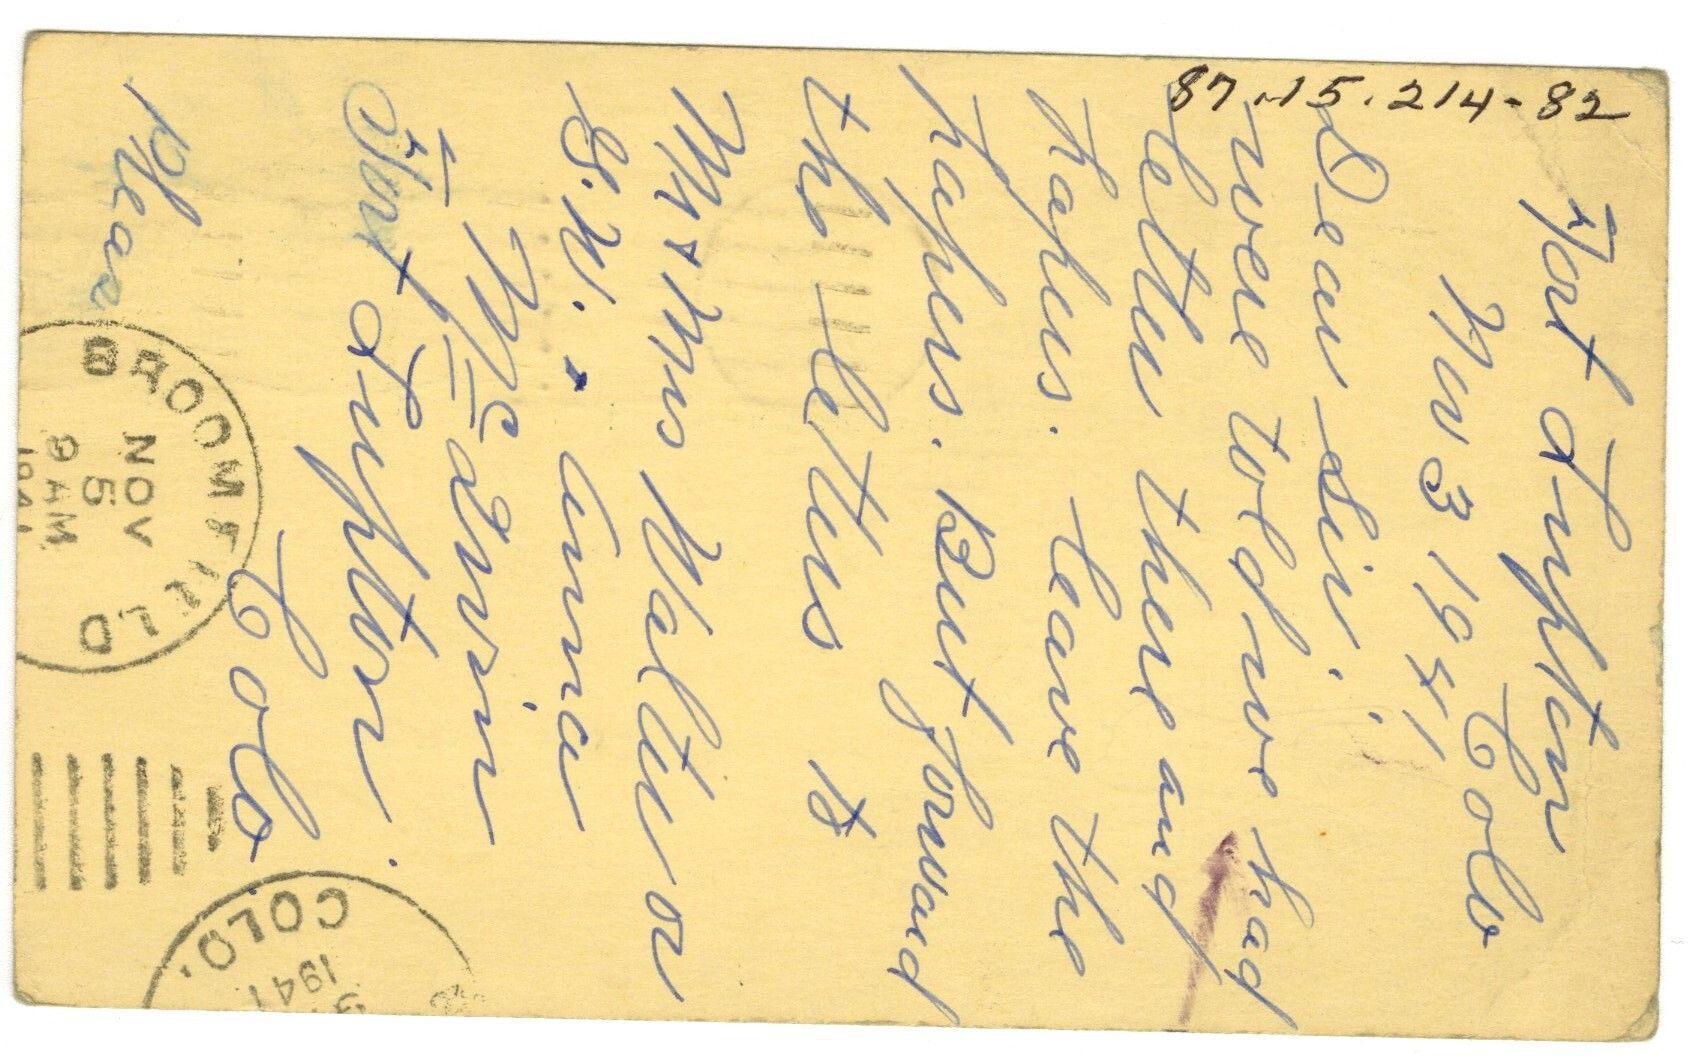 87.15.214-82
Fort Lupton
Colo
Nov 3 1941
Dear Sir.
were told we had
letter there and
papers. leave the
papers. But forward
the letters to
Mr & Mrs Walter or
G. W. . Anna
McQwin
Fort Lupton
Colo.
Please
BROOMFIELD
NOV
5
9 AM
1941
COLO.
1941